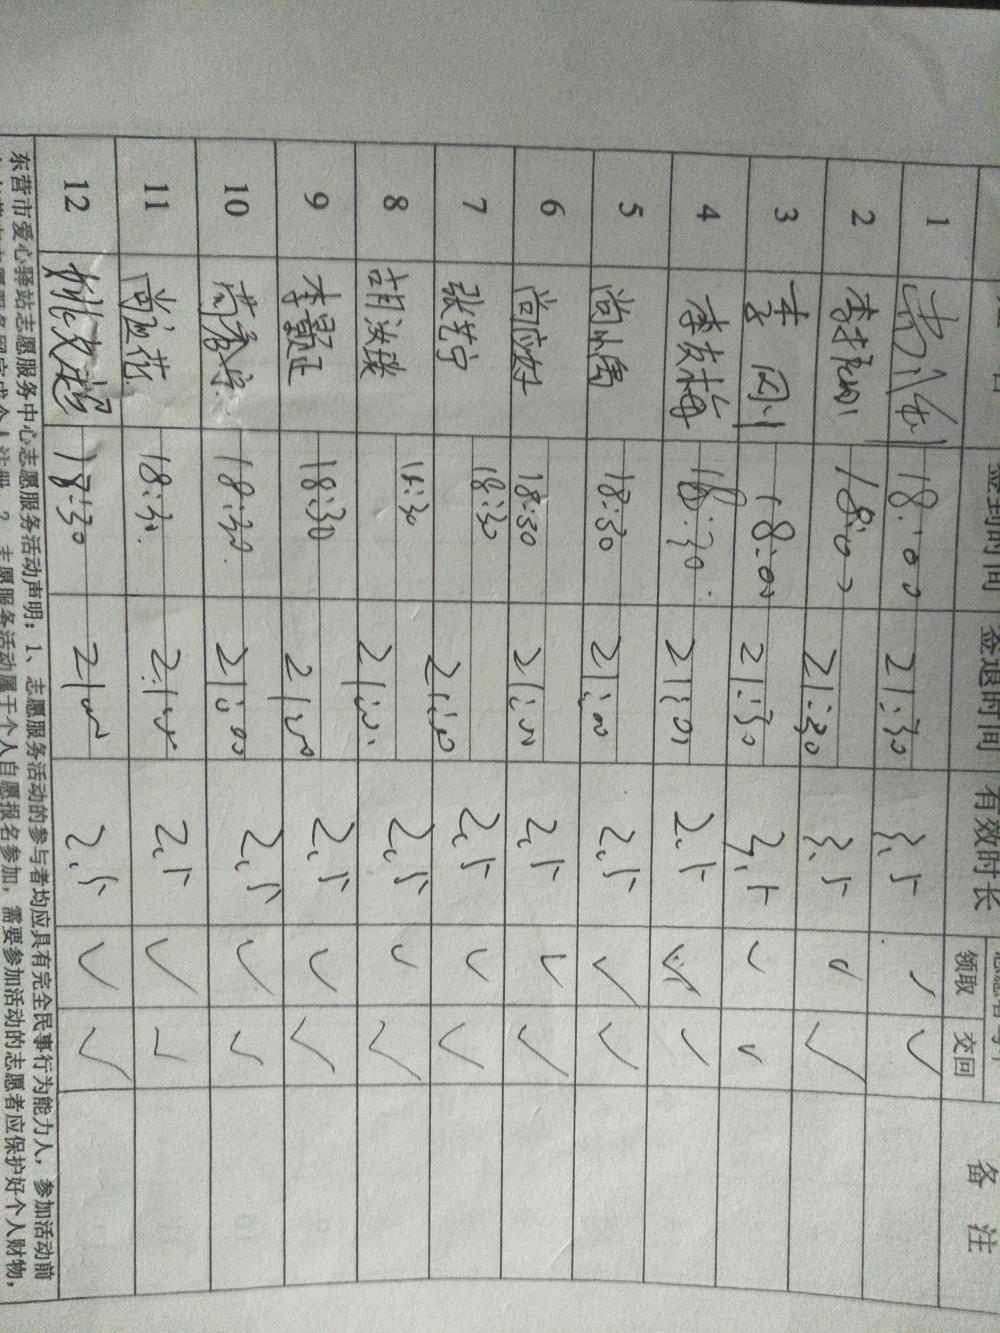 签到时间 签退时间 有效时长 领取 交回 备 注
1 18:00 21:30 3.5 ✓ ✓
2 18:00 21:30 3.5 ✓ ✓
3 李刚 18:00 21:30 3.5 ✓ ✓
4 李友梅 18:30 21:00 2.5 ✓ ✓
5 尚小雋 18:30 21:00 2.5 ✓ ✓
6 尚应好 18:30 21:00 2.5 ✓ ✓
7 张艺宁 18:30 21:00 2.5 ✓ ✓
8 胡汝璞 18:30 21:00 2.5 ✓ ✓
9 李景证 18:30 21:00 2.5 ✓ ✓
10 18:30 21:00 2.5 ✓ ✓
11 18:30 21:00 2.5 ✓ ✓
12 18:30 21:00 2.5 ✓ ✓
东营市爱心驿站志愿服务中心志愿服务活动声明：1、志愿服务活动的参与者均应具有完全民事行为能力人，参加活动前
完成个人注册。2、志愿服务活动属于个人自愿报名参加，需要参加活动的志愿者应保护好个人财物，